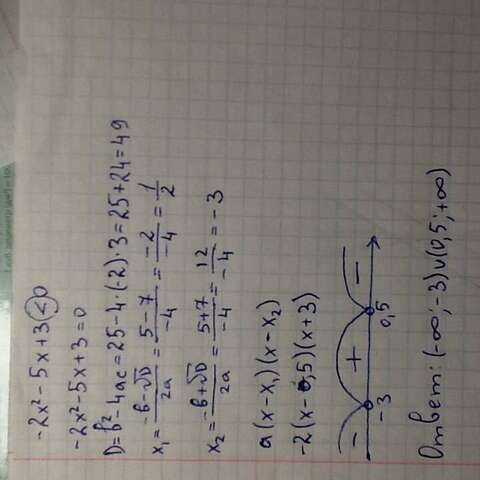 -2x² - 5x + 3 < 0
-2x² - 5x + 3 = 0
D = b² - 4ac = 25 - 4·(-2)·3 = 25 + 24 = 49
x₁ = (-b - √D)/2a = (5 - 7)/-4 = -2/-4 = 1/2
x₂ = (-b + √D)/2a = (5 + 7)/-4 = 12/-4 = -3
a(x - x₁)(x - x₂)
-2(x - 0,5)(x + 3)
- + -
-3 0,5
Ответ: (-∞; -3) ∪ (0,5; +∞)